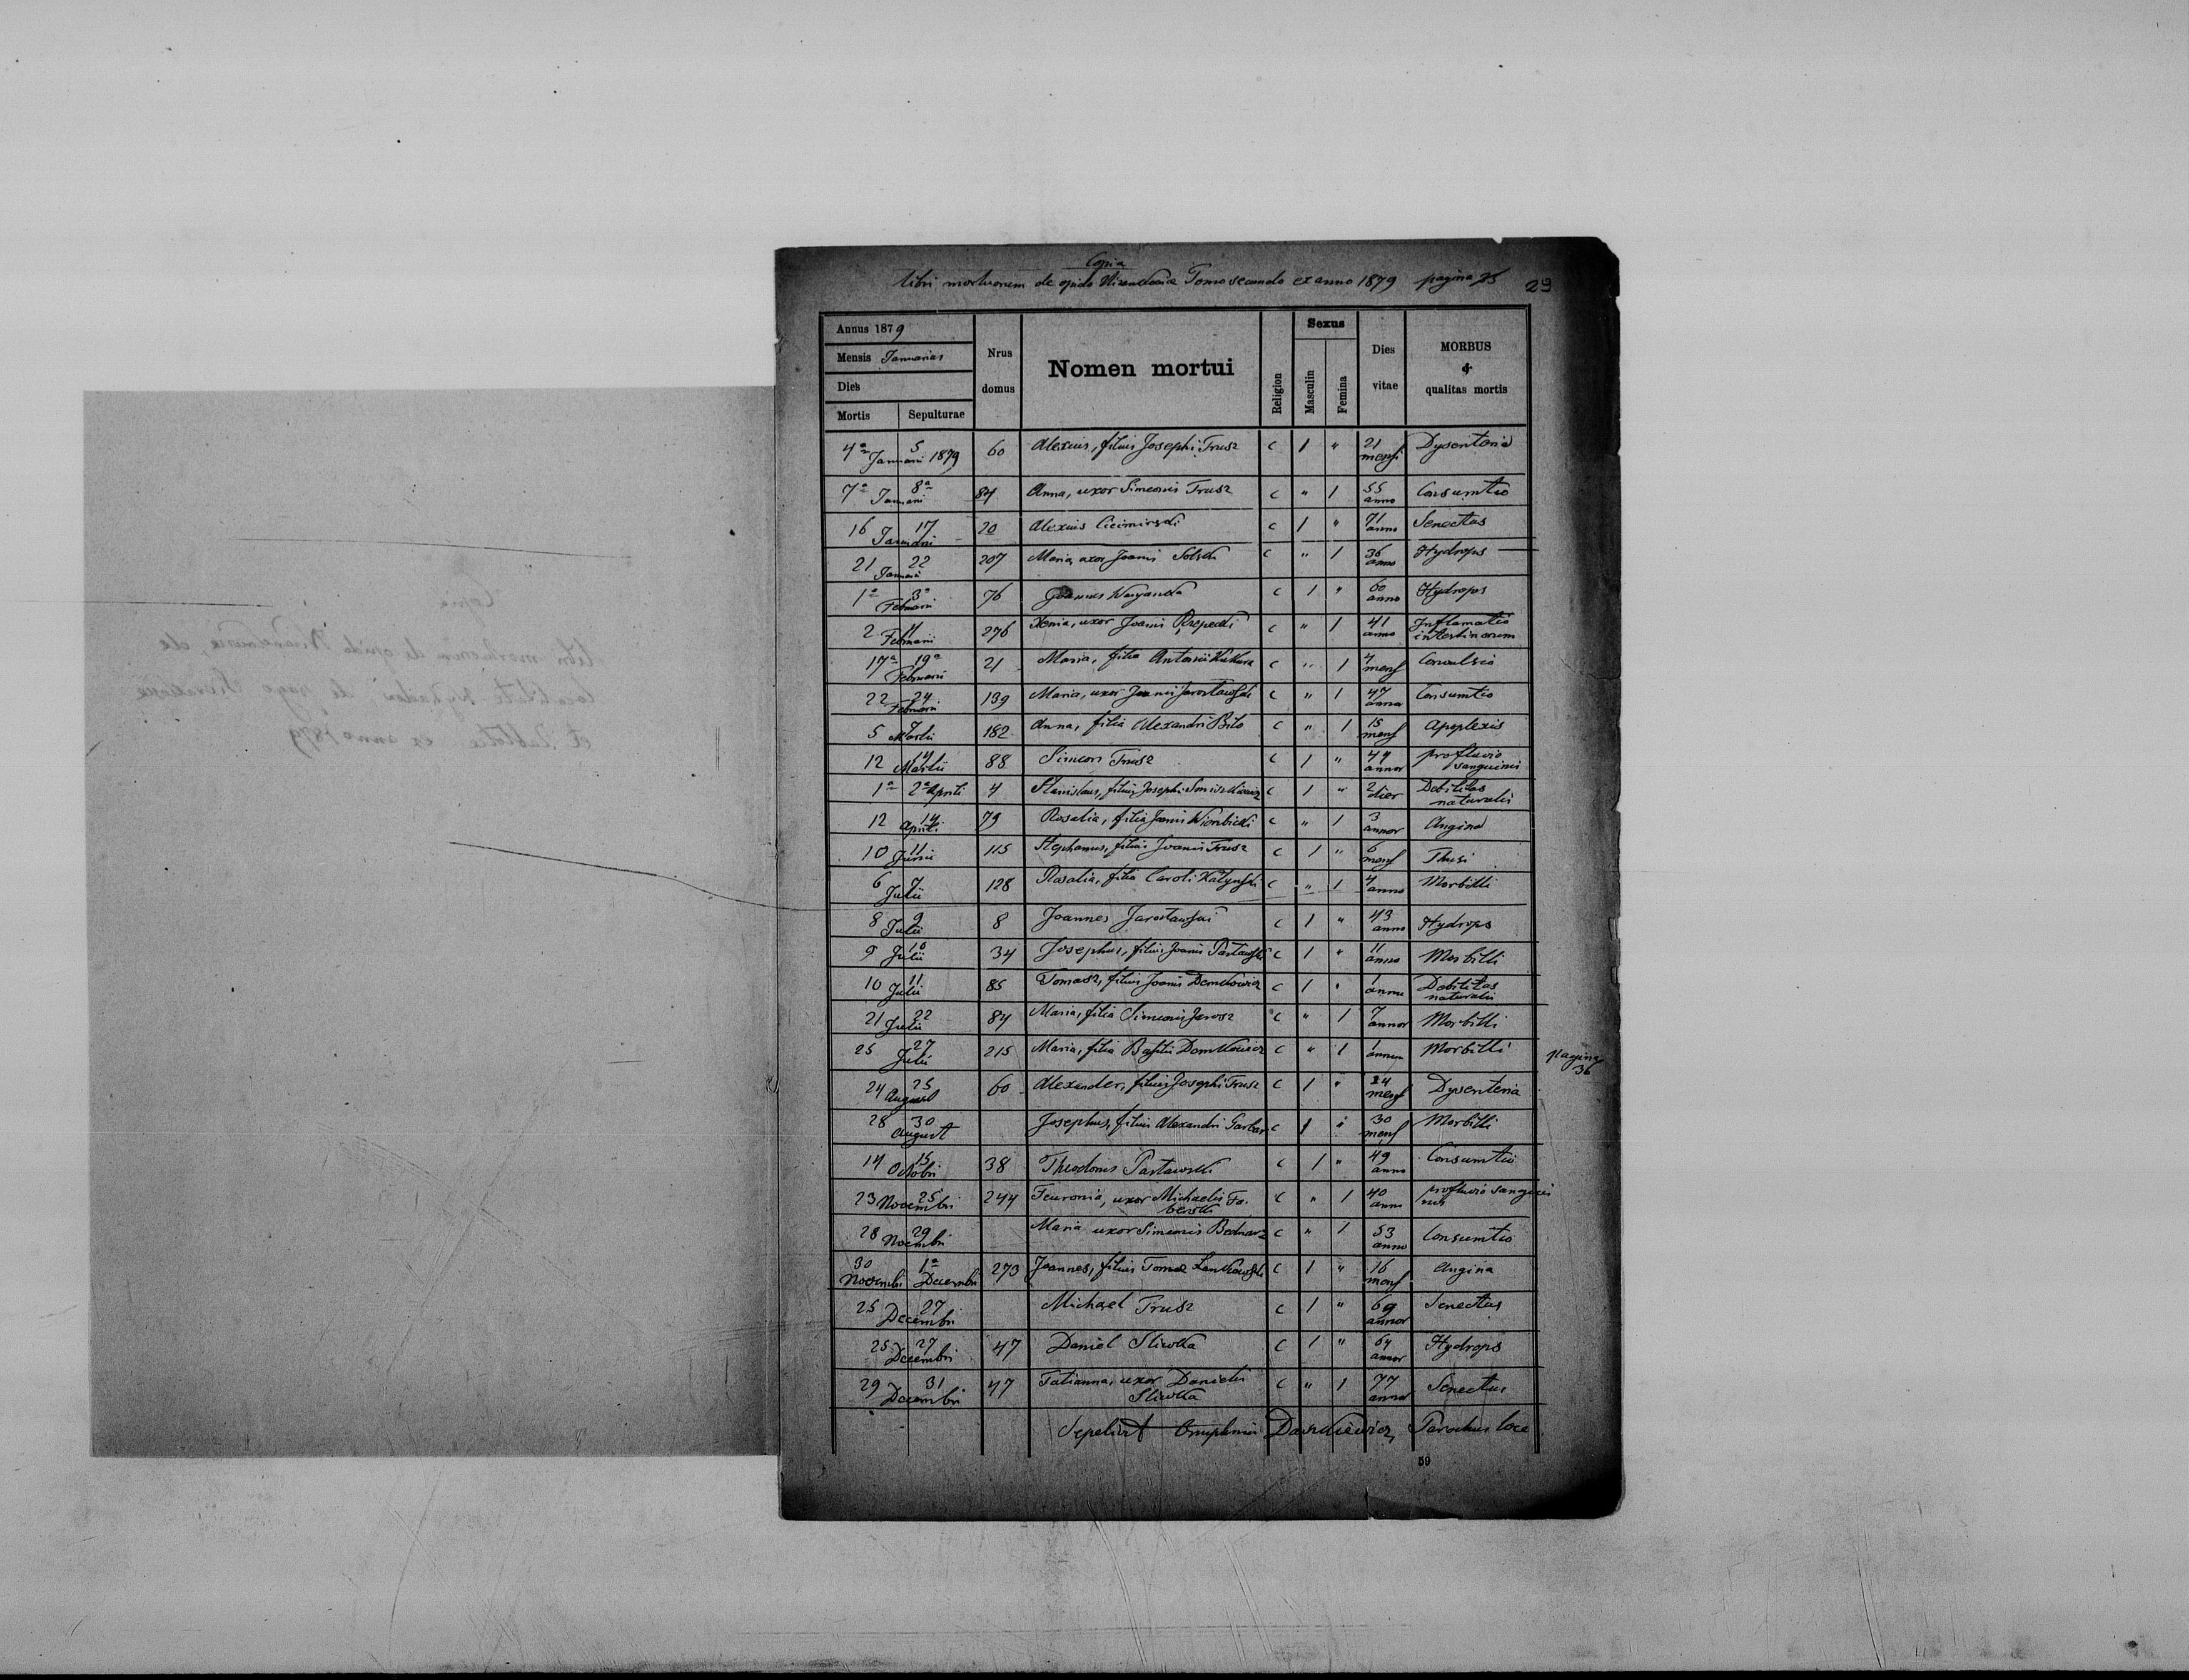 Copia
libri mortuorum de opido Tomo secundo ex anno 1879 pagina 25 29
Annus 1879
Mensis Januarius
Dies
Mortis Sepulturae
Nrus domus
Nomen mortui
Religion
Sexus
Masculin Femina
Dies vitae
MORBUS & qualitas mortis
4a 5 Januarii 1879 60 Alexius, filius Josephi Trusz C 1 " 21 mens Dysenteria
7a 8a Januarii 84 Anna, uxor Simeonis Trusz C " 1 55 anno Consumtio
16 17 Januarii 20 Alexius C 1 " 71 anno Senectus
21 22 Januarii 207 Maria, uxor Joanis Solski C " 1 36 anno Hydrops
1a 3a Februarii 76 Joannes C 1 " 60 anno Hydrops
2 4 Februarii 276 Xenia, uxor Joanis Rzepecki C " 1 41 anno Inflamatio intestinorum
17a 19a Februarii 21 Maria, filia Antonii Kukura C " 1 4 mens Convulsio
22 24 Februarii 139 Maria, uxor Joanis Jarosławski C " 1 47 anno Consumtio
5 7 Martii 182 Anna, filia Alexandri Biło C " 1 15 mens Apoplexis
12 14 Martii 88 Simeon Trusz C 1 " 44 annor profluvio sanguinis
1a 2a Aprili 4 Stanislaus, filius Josephi C 1 " 2 dier Debilitas naturalis
12 14 Aprili 79 Rosalia, filia Joanis Wierzbicki C " 1 3 annor Angina
10 11 Junii 115 Stephanus, filius Joanis Trusz C 1 " 6 mens Thusi
6 7 Julii 128 Rosalia, filia Caroli Katyński C " 1 4 anno Morbilli
8 9 Julii 8 Joannes Jarosławski C 1 " 43 anno Hydrops
9 10 Julii 34 Josephus, filius Joanis Pasławski C 1 " 11 anno Morbilli
10 11 Julii 85 Tomasz, filius Joanis Demkowicz C 1 " 1 anni Debilitas naturalis
21 22 Julii 84 Maria, filia Simeonis Jarosz C " 1 7 annor Morbilli
25 27 Julii 215 Maria, filia Basilii Demkowicz C " 1 1 annum Morbilli
pagina 36
24 25 August 60 Alexander, filius Josephi Trusz C 1 " 24 mens Dysenteria
28 30 August Josephus, filius Alexandri Garbar C 1 " 30 mens Morbilli
14 15 Octobri 38 Theodorus Pasławski C 1 " 49 anno Consumtio
23 25 Novembri 244 Feuronia, uxor Michaelis Faberski C " 1 40 anno profluvio sanguinis
28 29 Novembri Maria uxor Simeonis Bednarz C " 1 53 anno Consumtio
30 Novembri 1a Decembri 273 Joannes, filius Tomae Lenkowski C 1 " 16 mens Angina
25 27 Decembri Michael Trusz C 1 " 69 annor Senectus
25 27 Decembri 47 Daniel Sliwka C 1 " 64 annor Hydrops
29 31 Decembri 47 Tatianna, uxor Danielis Sliwka C " 1 77 annor Senectus
Sepelivit Onuphrius Daszkiewicz, Parochus loce
59
Copia
libri mortuorum de opido
de pago
ex anno 1879